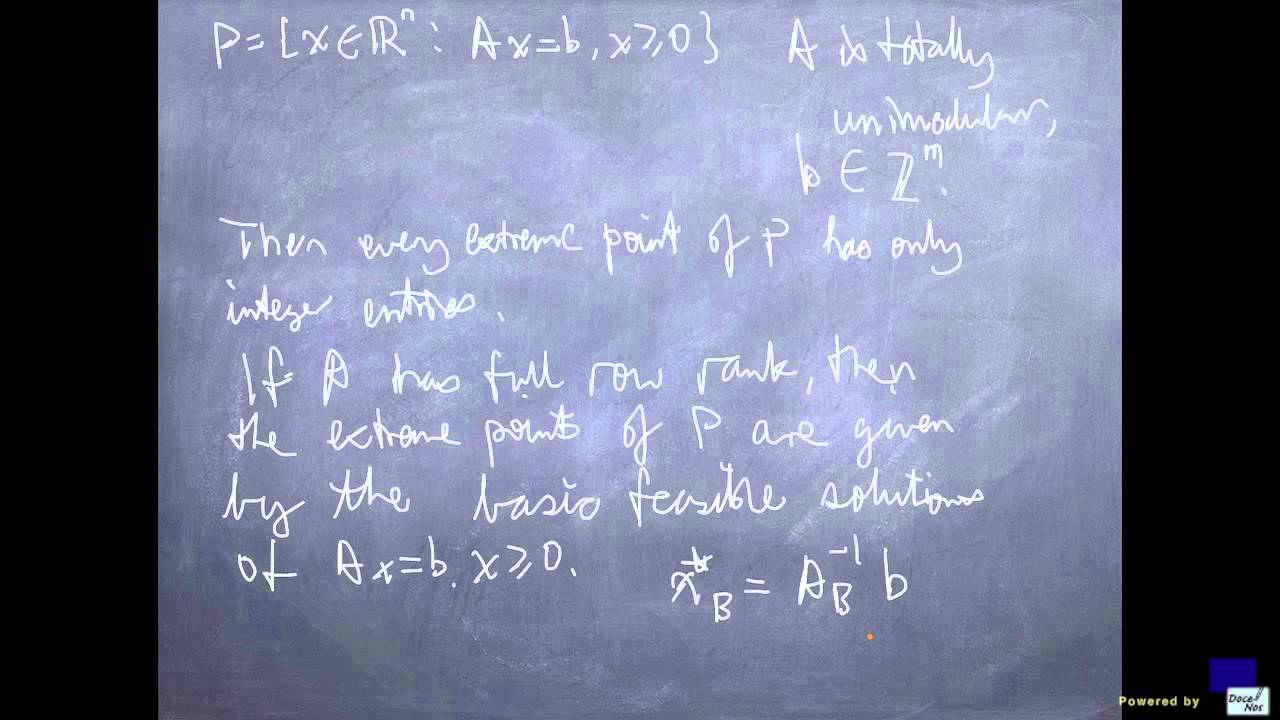 P = { x ∈ ℝⁿ : Ax = b, x ≥ 0 } A is totally
unimodular,
b ∈ ℤᵐ.
Then every extreme point of P has only
integer entries.
If A has full row rank, then
the extreme points of P are given
by the basic feasible solutions
of Ax = b, x ≥ 0. x*_B = A_B⁻¹ b
Powered by
Doce
Nos